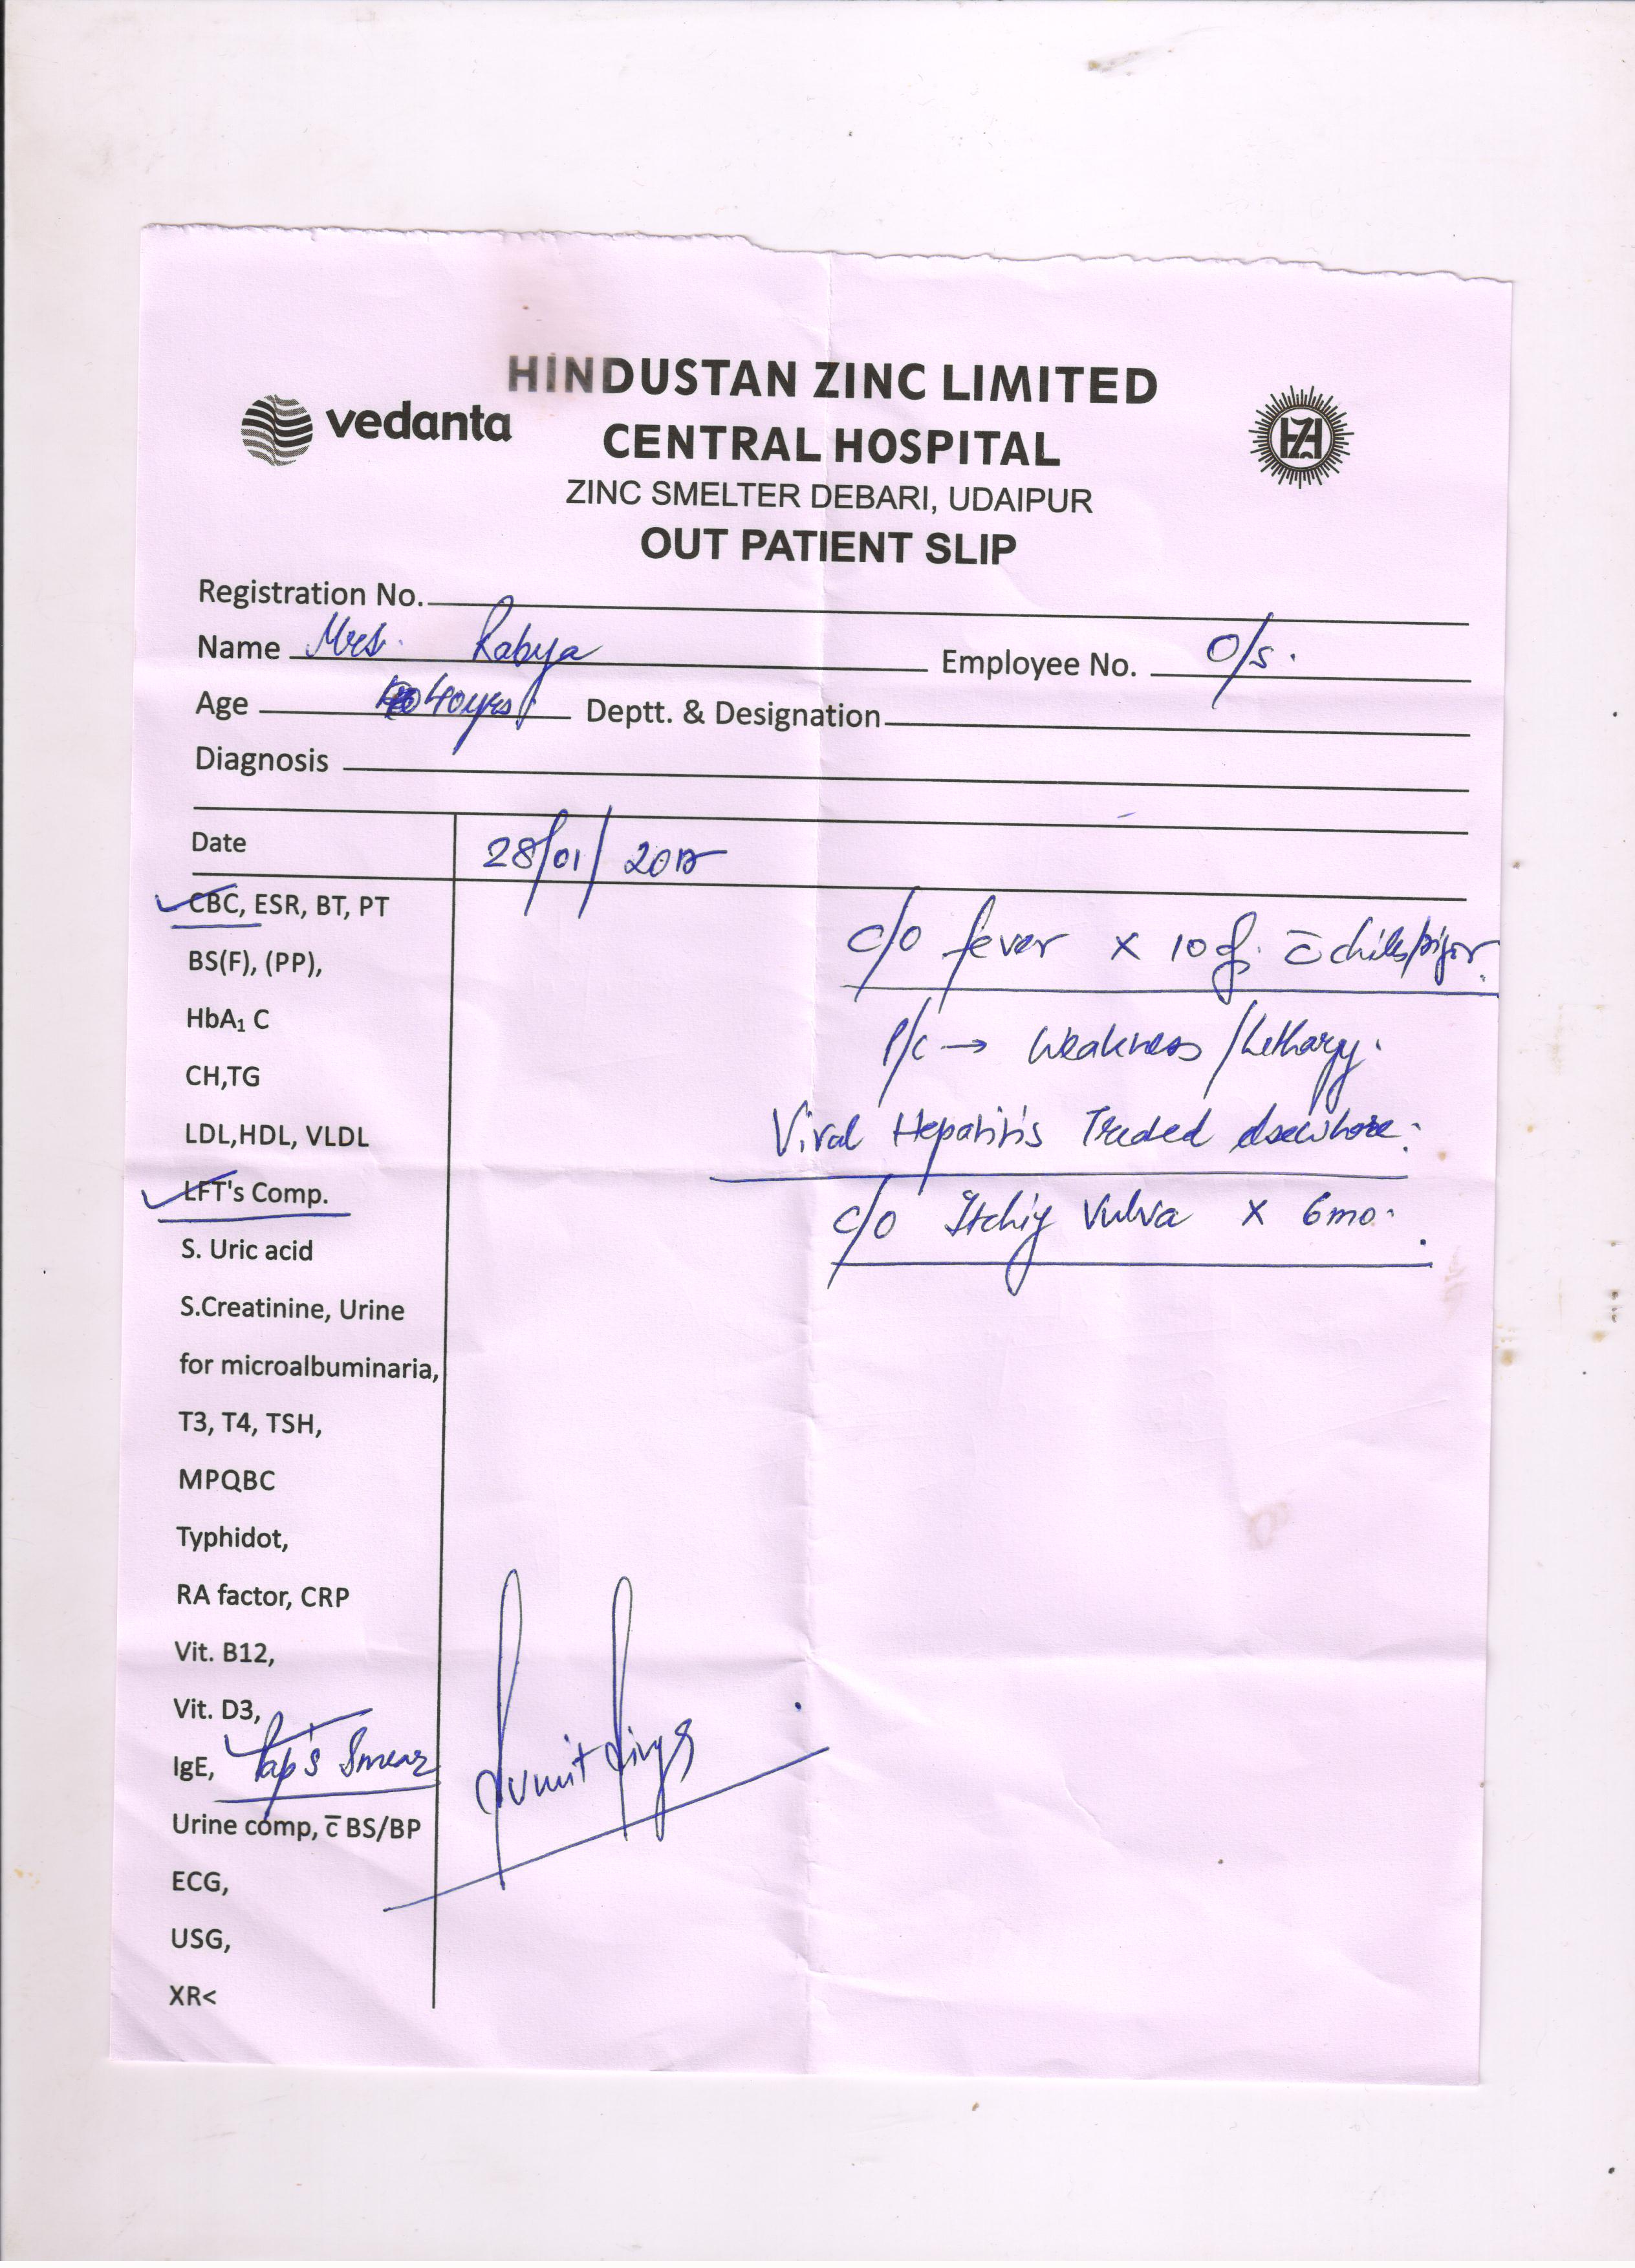 HINDUSTAN ZINC LIMITED
vedanta
CENTRAL HOSPITAL
HZL
ZINC SMELTER DEBARI, UDAIPUR
OUT PATIENT SLIP
Registration No.
Name Mrs. Rabya Employee No. O/s.
Age 40yrs Deptt. & Designation
Diagnosis
Date 28/01/
CBC, ESR, BT, PT
c/o fever x 10 c̄ chills/rigor.
BS(F), (PP),
HbA₁ C
P/c → Weakness /Lethargy.
CH,TG
LDL,HDL, VLDL
Viral Hepatitis Treated elsewhere.
LFT's Comp.
c/o Itchig Vulva x 6mo.
S. Uric acid
S.Creatinine, Urine
for microalbuminaria,
T3, T4, TSH,
MPQBC
Typhidot,
RA factor, CRP
Vit. B12,
Vit. D3,
IgE, Pap's Smear
Sumit
Urine comp, c̄ BS/BP
ECG,
USG,
XR<